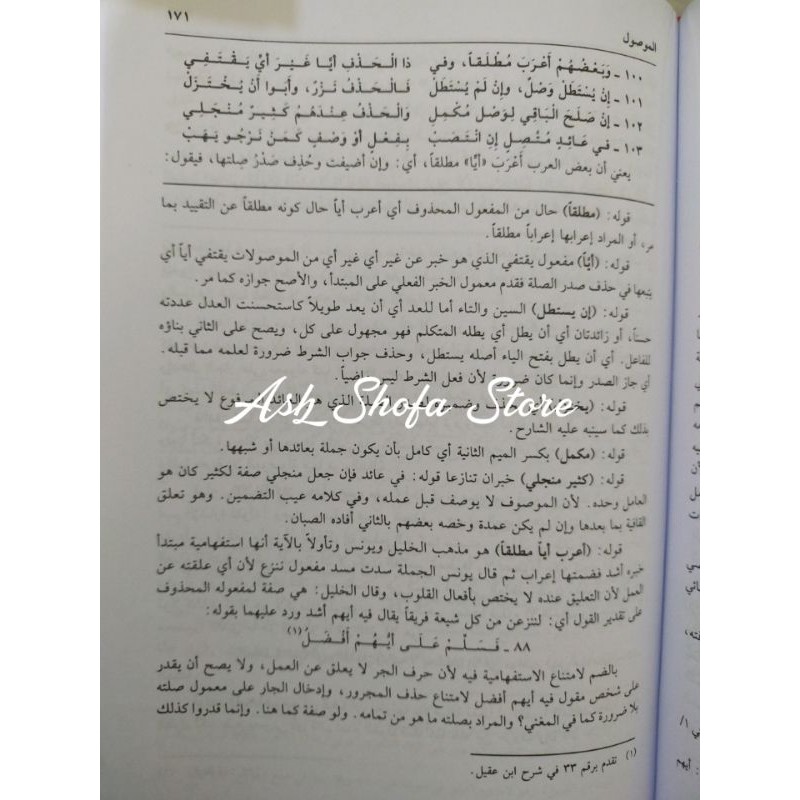 ١٧١
الموصول
١٠٠ - وَبَعْضُهُمْ أَعْرَبَ مُطْلَقاً، وفي ذا الْحَذْفِ أيًّا غَيْرَ أيٍّ يَقْتَفِي
١٠١ - إنْ يُسْتَطَلْ وَصْلٌ، وَإنْ لَمْ يُسْتَطَلْ فَالْحَذْفُ نَزْرٌ، وأَبَوْا أنْ يُخْتَزَلْ
١٠٢ - إنْ صَلَحَ الْبَاقِي لِوَصْلٍ مُكْمِلِ وَالْحَذْفُ عِنْدَهُمْ كَثِيرٌ مُنْجَلِي
١٠٣ - في عَائِدٍ مُتَّصِلٍ إنِ انْتَصَبْ بِفِعْلٍ أوْ وَصْفٍ كَمَنْ نَرْجُو يَهَبْ
يعني أن بعض العرب أَعْرَبَ «أيًّا» مطلقاً، أي: وإن أضيفت وحُذِف صَدْرُ صِلتها، فيقول:
قوله: (مطلقاً) حال من المفعول المحذوف أي أعرب أياً حال كونه مطلقاً عن التقييد بما
مر، أو المراد إعرابها إعراباً مطلقاً.
قوله: (أيّاً) مفعول يقتفي الذي هو خبر عن غير أي غير أي من الموصولات يقتفي أياً أي
يتبعها في حذف صدر الصلة فقدم معمول الخبر الفعلي على المبتدأ، والأصح جوازه كما مر.
قوله: (إن يستطل) السين والتاء أما للعد أي أن يعد طويلاً كاستحسنت العدل عددته
حسناً، أو زائدتان أي أن يطل أي يطله المتكلم فهو مجهول على كل، ويصح على الثاني بناؤه
للفاعل. أي أن يطل بفتح الياء أصله يستطل، وحذف جواب الشرط ضرورة لعلمه مما قبله.
أي جاز الصدر وإنما كان لأن فعل الشرط ليس ماضياً.
Ash Shofa Store
قوله: الذي هو لا يختص
بذلك كما سينبه عليه الشارح.
قوله: (مكمل) بكسر الميم الثانية أي كامل بأن يكون جملة بعائدها أو شبهها.
قوله: (كثير منجلي) خبران تنازعا قوله: في عائد فإن جعل منجلي صفة لكثير كان هو
العامل وحده. لأن الموصوف لا يوصف قبل عمله، وفي كلامه عيب التضمين. وهو تعلق
القافية بما بعدها وإن لم يكن عمدة وخصه بعضهم بالثاني أفاده الصبان.
قوله: (أعرب أياً مطلقاً) هو مذهب الخليل ويونس وتأولاً بالآية أنها استفهامية مبتدأ
خبره أشد فضمتها إعراب ثم قال يونس الجملة سدت مسد مفعول ننزع لأن أي علقته عن
العمل لأن التعليق عنده لا يختص بأفعال القلوب، وقال الخليل: هي صفة لمفعوله المحذوف
على تقدير القول أي: لننزعن من كل شيعة فريقاً يقال فيه أيهم أشد ورد عليهما بقوله:
٨٨ - فَسَلِّمْ عَلَى أيُّهُمْ أَفْضَلُ(١)
بالضم لامتناع الاستفهامية فيه لأن حرف الجر لا يعلق عن العمل، ولا يصح أن يقدر
على شخص مقول فيه أيهم أفضل لامتناع حذف المجرور، وإدخال الجار على معمول صلته
بلا ضرورة كما في المغني؟ والمراد بصلته ما هو من تمامه. ولو صفة كما هنا. وإنما قدروا كذلك
(١) تقدم برقم ٣٣ في شرح ابن عقيل.